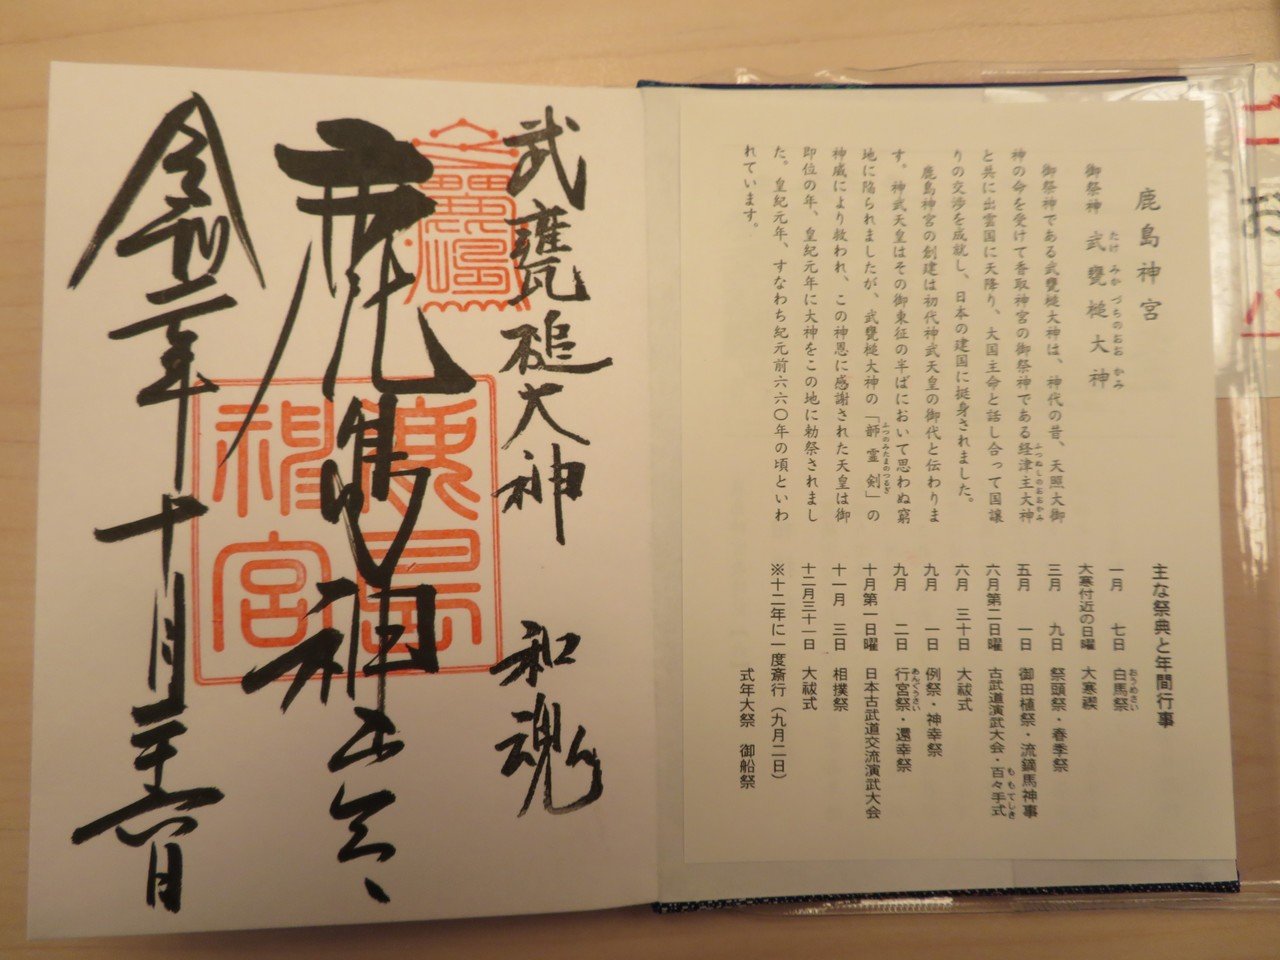 鹿島神宮
御祭神 武甕槌大神
たけ みか づちのおお かみ
御祭神である武甕槌大神は、神代の昔、天照大御
神の命を受けて香取神宮の御祭神である経津主大神
ふつぬしのおおかみ
と共に出雲国に天降り、大国主命と話し合って国譲
りの交渉を成就し、日本の建国に挺身されました。
鹿島神宮の創建は初代神武天皇の御代と伝わりま
す。神武天皇はその御東征の半ばにおいて思わぬ窮
地に陥られましたが、武甕槌大神の「韴霊剣」の
ふつのみたまのつるぎ
神威により救われ、この神恩に感謝された天皇は御
即位の年、皇紀元年に大神をこの地に勅祭されまし
た。皇紀元年、すなわち紀元前六六〇年の頃といわ
れています。
主な祭典と年間行事
一月 七日 白馬祭
おうめさい
大寒付近の日曜 大寒禊
三月 九日 祭頭祭・春季祭
五月 一日 御田植祭・流鏑馬神事
六月第二日曜 古武道演武大会・百々手式
ももてしき
六月 三十日 大祓式
九月 一日 例祭・神幸祭
九月 二日 行宮祭・還幸祭
あんぐうさい
十月第一日曜 日本古武道交流演武大会
十一月 三日 相撲祭
十二月三十一日 大祓式
※十二年に一度斎行（九月二日）
式年大祭 御船祭
武甕槌大神 和魂
鹿島神宮
鹿島
神宮
令和二年十月二十六日